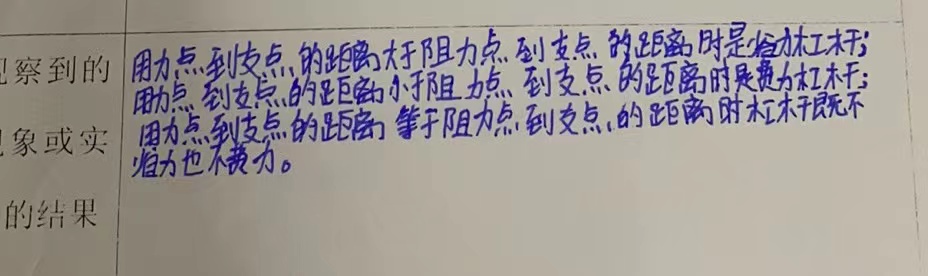 观察到的
现象或实
的结果
用力点到支点的距离大于阻力点到支点的距离时是省力杠杆;
用力点到支点的距离小于阻力点到支点的距离时是费力杠杆;
用力点到支点的距离等于阻力点到支点的距离时杠杆既不
省力也不费力。